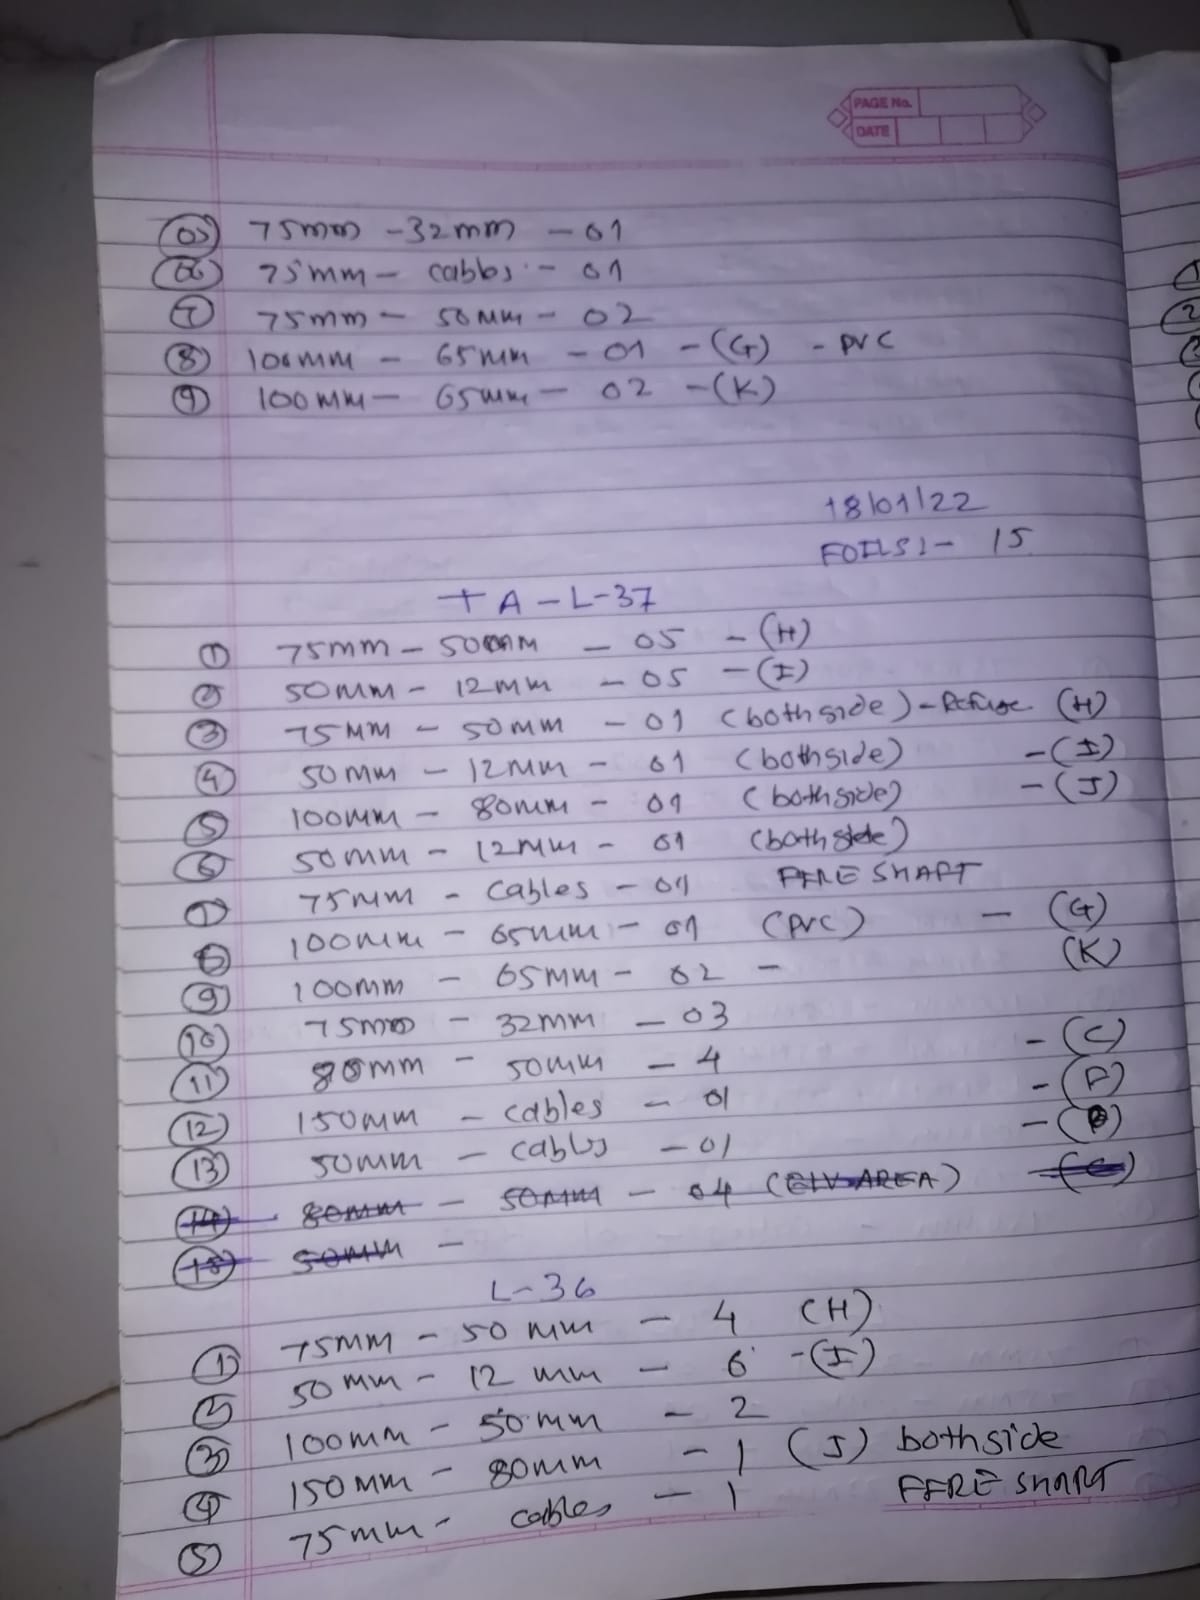 PAGE No.
DATE
05 75mm - 32mm - 01
06 75mm - cables - 01
7 75mm - 50mm - 02
8 100mm - 65mm - 01 - (G) - PVC
9 100mm - 65mm - 02 - (K)
18/01/22
FOILS:- 15
TA - L-37
1 75mm - 50mm - 05 - (H)
2 50mm - 12mm - 05 - (I)
3 75mm - 50mm - 01 (both side) - Refuge (H)
4 50mm - 12mm - 01 (bothside) - (I)
5 100mm - 80mm - 01 (bothside) - (J)
6 50mm - 12mm - 01 (both side)
7 75mm - cables - 01 FIRE SHAFT
8 100mm - 65mm - 01 (PVC) - (G)
9 100mm - 65mm - 02 - (K)
10 75mm - 32mm - 03
11 80mm - 50mm - 4 - (C)
12 150mm - cables - 01 - (F)
13 50mm - cables - 01 -
14 80mm - 50mm - 04 ( AREA) (C)
15 50mm -
L-36
1 75mm - 50mm - 4 (H)
2 50mm - 12mm - 6 - (I)
3 100mm - 50mm - 2
4 150mm - 80mm - 1 (J) bothside
5 75mm - cables - 1 FIRE SHAFT